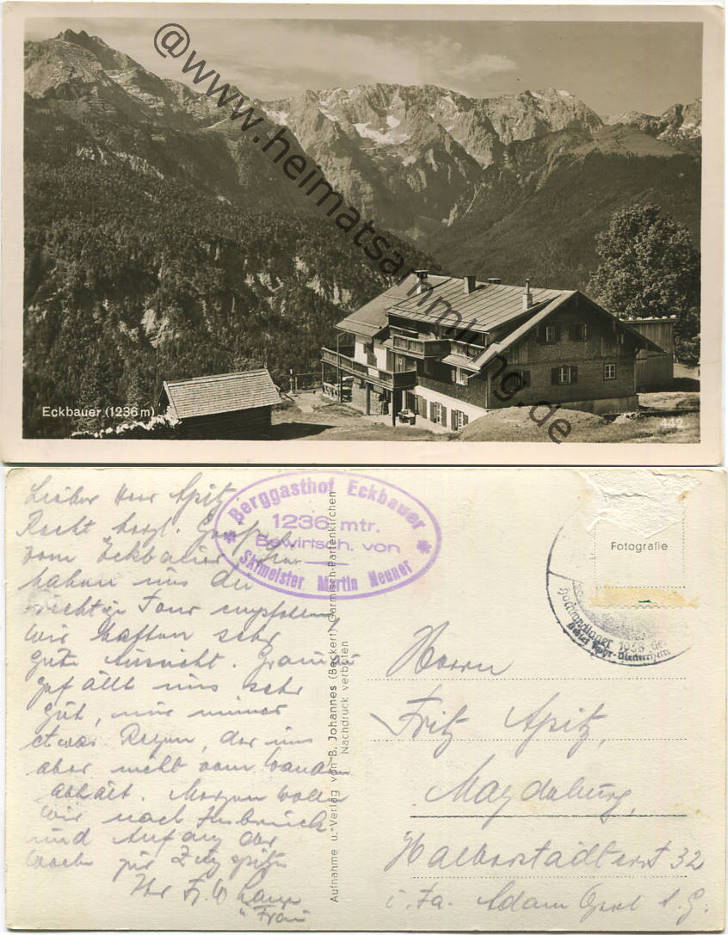 @www.heimatsammlung.de
Eckbauer (1236m)
442
Lieber Herr Apitz
Recht herzl.
vom Eckbauer
haben uns die
richtige Tour empfohlen
wir hatten sehr
gute Aussicht. Grainau
gefällt uns sehr
gut, nur immer
etwas Regen, der uns
aber nicht vom Wandern
abhält. Morgen wollen
wir nach Insbruck
und Anfang der
Woche zur Zugspitze
Ihr
u. Frau
Berggasthof Eckbauer
1236 mtr.
Bewirtsch. von
Skimeister Martin Neuner
Aufnahme u. Verlag von B. Johannes (Beckert) Garmisch-Partenkirchen
Nachdruck verboten
Fotografie
1936
Herrn
Fritz Apitz,
Magdeburg,
Halberstädterst 32
i. Fa. Adam Opel A.G.